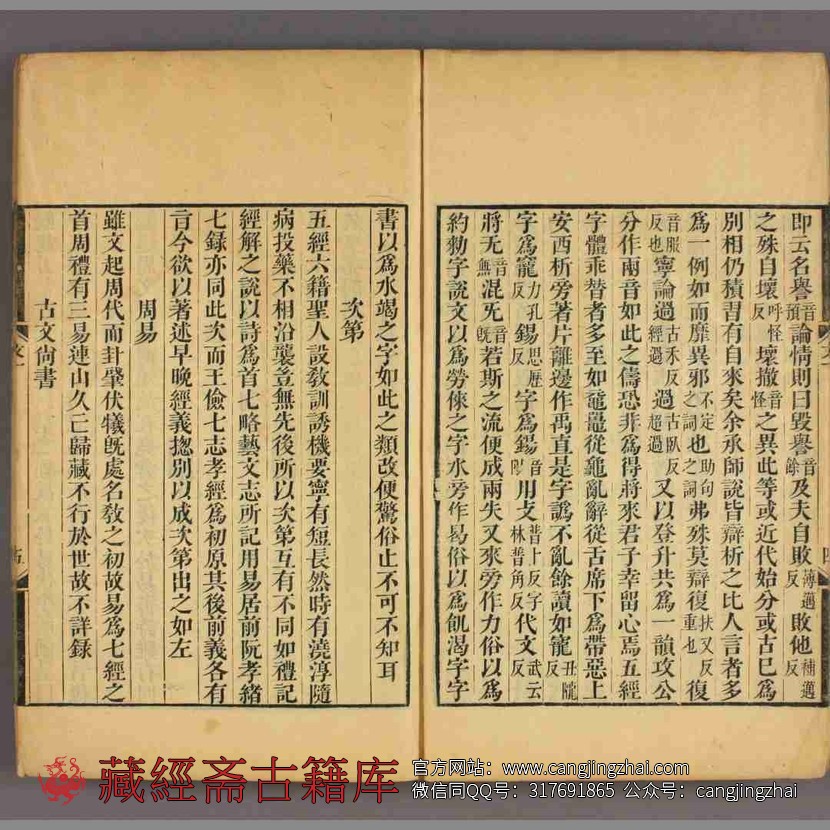 即云名譽音預論情則曰毀譽音餘及夫自敗薄邁反敗他補邁反
之殊自壞呼怪反壞撤音怪之異此等或近代始分或古已爲
別相仍積習有自來矣余承師說皆辯析之比人言者多
爲一例如而靡異邪不定之詞也助句之詞弗殊莫辯復扶又反重也復
音服反也寧論過古禾反經過過古臥反超過又以登升共爲一韻攻公
分作兩音如此之儔恐非爲得將來君子幸留心焉五經
字體乖替者多至如黿鼉從龜亂辭從舌席下爲帶惡上
安西析旁著片離邊作禹直是字譌不亂餘讀如寵丑隴反
字爲寵力孔反錫思歷反字爲鍚音陽用攴普卜反字林普角反代文武云反
將无音無混旡音旣若斯之流便成兩失又來旁作力俗以爲
約勑字說文以爲勞倈之字水旁作曷俗以爲飢渴字字
書以爲水竭之字如此之類改便驚俗止不可不知耳
次第
五經六籍聖人設敎訓誘機要寧有短長然時有澆淳隨
病投藥不相沿襲豈無先後所以次第互有不同如禮記
經解之說以詩爲首七略藝文志所記用易居前阮孝緖
七錄亦同此次而王儉七志孝經爲初原其後前義各有
㫖今欲以著述早晚經義揔別以成次第出之如左
周易
雖文起周代而卦肇伏犧旣處名敎之初故易爲七經之
首周禮有三易連山久亡歸藏不行於世故不詳錄
古文尙書
藏經斋古籍库
官方网站：www.cangjingzhai.com
微信同QQ号：317691865 公众号：cangjingzhai